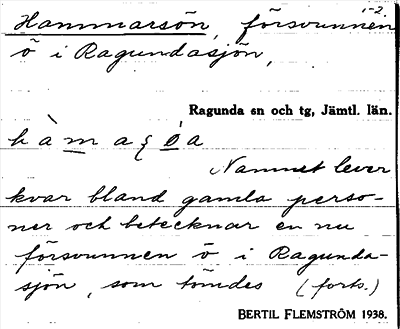 1-2.
Hammarsön, försvunnen
ö i Ragundasjön,
Ragunda sn och tg, Jämtl. län.
Namnet lever
kvar bland gamla perso-
ner och betecknar en nu
försvunnen ö i Ragunda-
sjön, som tömdes (forts.)
BERTIL FLEMSTRÖM 1938.